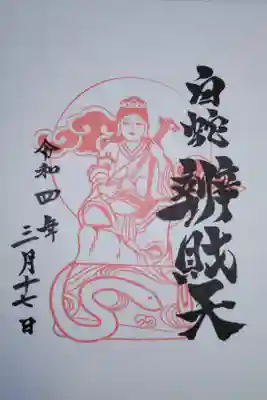 白蛇
辨財天
令和四年
三月十七日